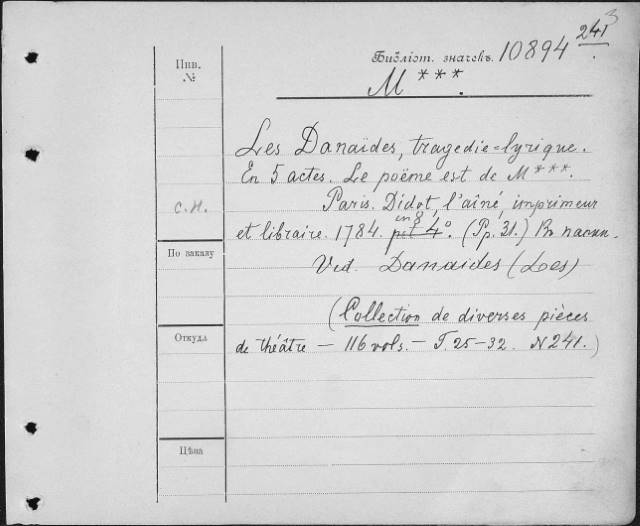 Инв.
№
Библіот. значекъ. 10894 241
3
M ***.
Les Danaïdes, tragedie=lyrique.
En 5 actes. Le poëme est de M***.
Paris. Didot, l'aîné, imprimeur
с.н.
in 8
et libraire. 1784. pet 4°. (Pp. 31.) Въ папки.
По заказу
Vid. Danaides (Les)
(Collection de diverses pièces
Откуда
de théâtre — 116 vols. — T. 25-32. N 241.)
Цѣна